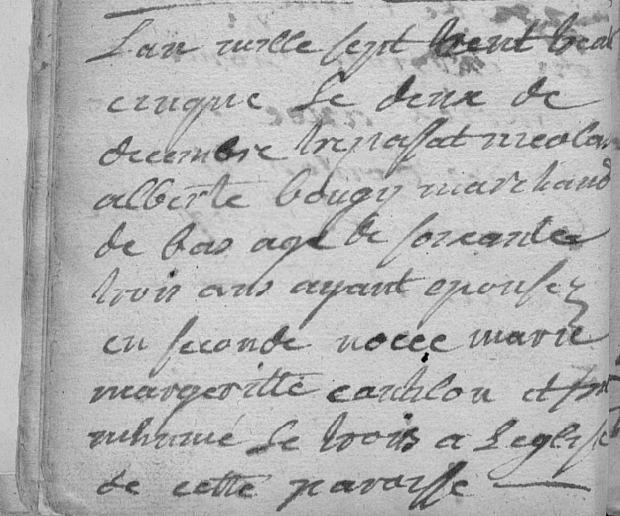 Lan mille sept cent trente
cinque le deux de
decembre trepassat nicolas
alberte bougy marchand
de bas age de soixante
trois ans ayant epousez
en seconde nocce marie
margeritte cantilon et fut
inhumé le trois a Leglise
de cette paroisse